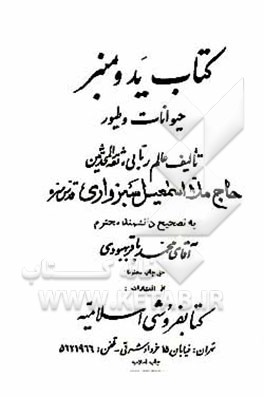 کتاب ید و منبر
حیوانات و طیور
تألیف عالم ربانی ثقة المحدثین
حاج ملا اسمعیل سبزواری قدس سره
به تصحیح دانشمند محترم
آقای محمد باقر بهبودی
حق چاپ محفوظ
از انتشارات :
کتابفروشی اسلامیه
تهران: خیابان ۱۵ خرداد شرقی - تلفن: ۵۶۲۱۹۶۶
چاپ اسلامیه